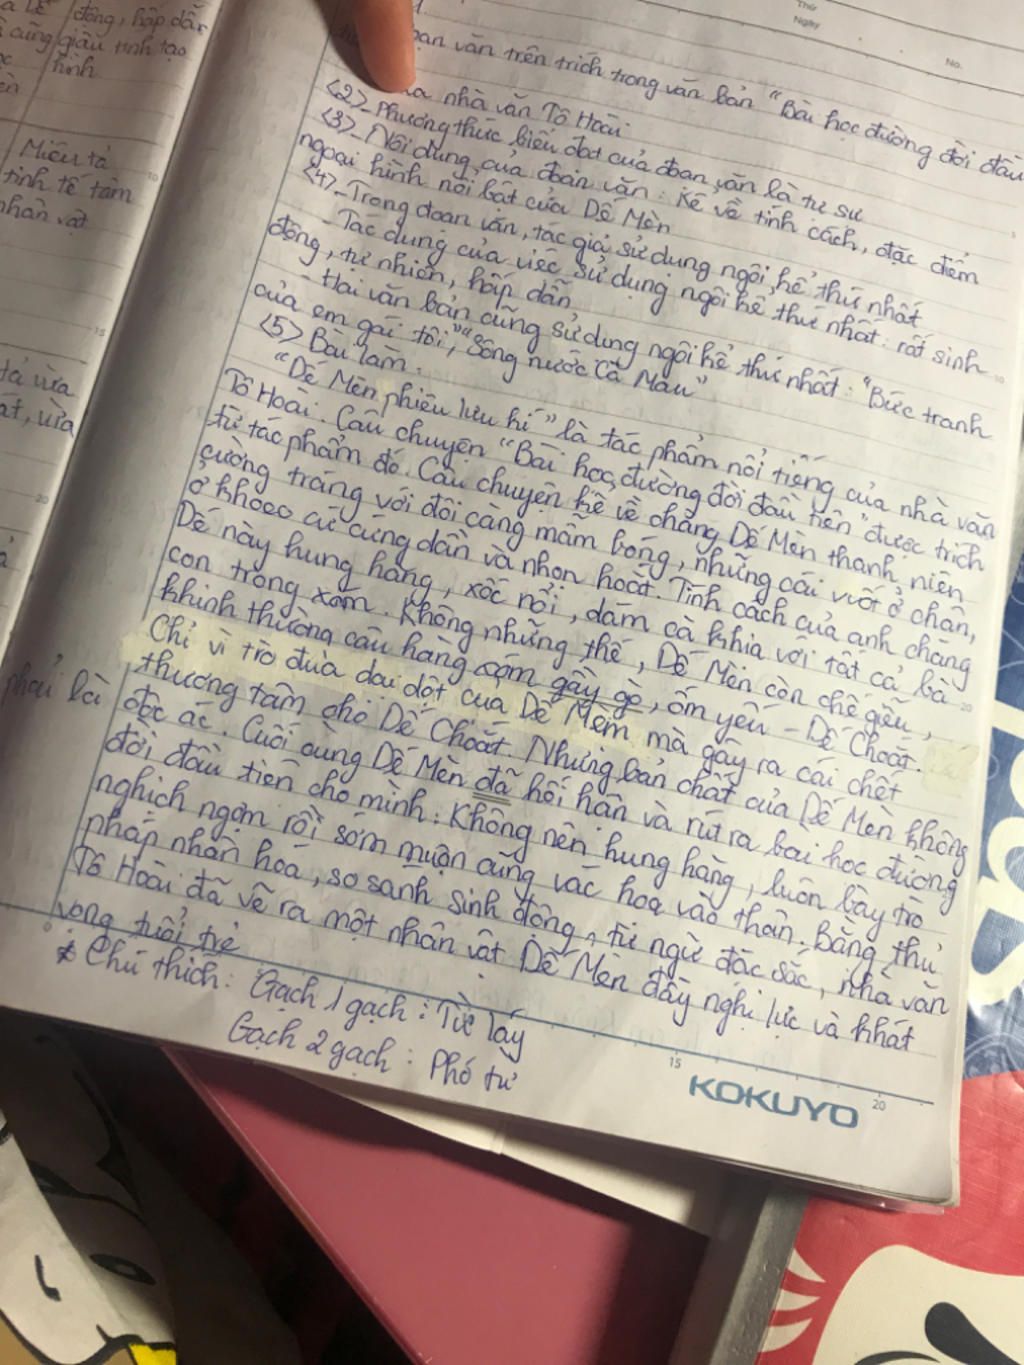 động, hấp dẫn
cũng giàu tính tạo
hình
Miêu tả
tinh tế tâm
nhân vật
tả vừa
ất, vừa
Thứ
Ngày
No.
văn trên trích trong văn bản "Bài học đường đời đầu
nhà văn Tô Hoài
<2>- Phương thức biểu đạt của đoạn văn là tự sự
<3>- Nội dung của đoạn văn: Kể về tính cách, đặc điểm
ngoại hình nổi bật của Dế Mèn
<4>- Trong đoạn văn, tác giả sử dụng ngôi kể thứ nhất
- Tác dụng của việc sử dụng ngôi kể thứ nhất: rất sinh
động, tự nhiên, hấp dẫn
- Hai văn bản cũng sử dụng ngôi kể thứ nhất: "Bức tranh
của em gái tôi", "Sông nước Cà Mau"
<5> Bài làm.
"Dế Mèn phiêu lưu kí" là tác phẩm nổi tiếng của nhà văn
Tô Hoài. Câu chuyện "Bài học đường đời đầu tiên" được trích
từ tác phẩm đó. Câu chuyện kể về chàng Dế Mèn thanh niên
cường tráng với đôi càng mẫm bóng, những cái vuốt ở chân,
ở khoeo cứ cứng dần và nhọn hoắt. Tính cách của anh chàng
Dế này hung hăng, xốc nổi, dám cà khịa với tất cả bà
con trong xóm. Không những thế, Dế Mèn còn chế giễu,
khinh thường cậu hàng xóm gầy gò, ốm yếu - Dế Choắt.
Chỉ vì trò đùa dại dột của Dế Mèm mà gây ra cái chết
thương tâm cho Dế Choắt. Nhưng bản chất của Dế Mèn không
phải là độc ác. Cuối cùng Dế Mèn đã hối hận và rút ra bài học đường
đời đầu tiên cho mình: Không nên hung hăng, luôn bày trò
nghịch ngợm rồi sớm muộn cũng vác hoạ vào thân. Bằng thủ
pháp nhân hoá, so sánh sinh động, từ ngữ đặc sắc, nhà văn
Tô Hoài đã vẽ ra một nhân vật Dế Mèn đầy nghị lực và khát
vọng tuổi trẻ
* Chú thích: Gạch 1 gạch: Từ láy
Gạch 2 gạch: Phó từ
15
KOKUYO
20